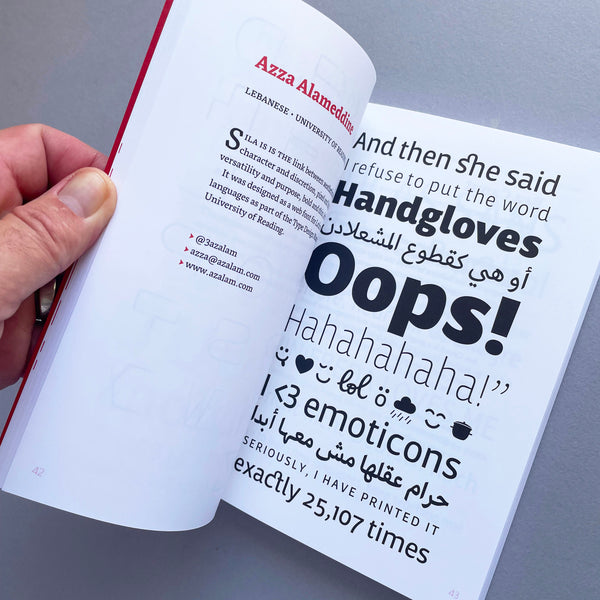 Azza Alameddine
LEBANESE • UNIVERSITY OF READING
SILA IS IS THE link between
character and discretion,
versatility and purpose, bold and
It was designed as a web font for
languages as part of the Type Design
University of Reading.
@3azalam
azza@azalam.com
www.azalam.com
42
And then she said
I refuse to put the word
Handgloves
أو هي كقطوع المشعلادن
Oops!
Hahahahaha!”
lol ö
I <3 emoticons
حرام عقلها مش معها أبدا
SERIOUSLY, I HAVE PRINTED IT
exactly 25,107 times
43